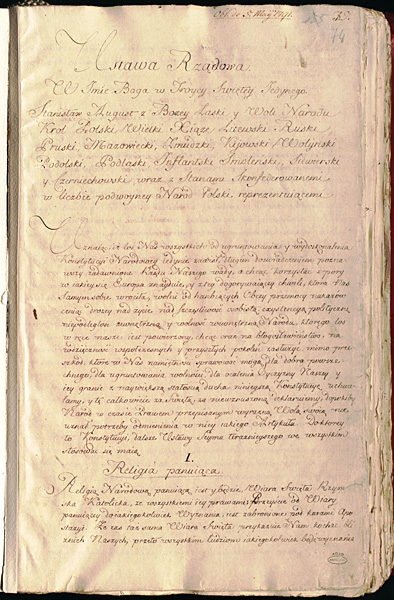 Ustawa Rządowa.
W Imie Boga w Troycy Swiętey Jedynego.
Stanisław August z Bożey Łaski y Woli Narodu
Krol Polski, Wielki Xiąże Litewski, Ruski
Pruski, Mazowiecki, Zmudzki, Kijowski, Wołynski
Podolski, Podlaski, Inflantski, Smolenski, Siewierski
y Czerniechowski, wraz z Stanami Skonfederowanemi
w liczbie podwoyney Narod Polski reprezentuiącemi
Uznaiąc, iż los Nas wszystkich od ugruntowania y wydoskonalenia
Konstytucyi Narodowey iedynie zawisł, długim doswiadczeniem pozna-
wszy zadawnione Rządu Naszego wady, a chcąc korzystać z pory
w iakiey się Europa znayduie, y z tey dogorywaiącey chwili, która Nas
Samym sobie wrociła, wolni od hanbiących Obcey przemocy nakazow
ceniąc drożey nad życie, nad szczęśliwość osobistą, exystencyą polityczną
niepodległość zewnętrzną y wolność wewnętrzną Narodu, którego los
w ręce nasze iest powierzony, chcąc oraz na błogosławienstwo, na
wdzięczność wspołczesnych y przyszłych pokoleń zasłużyć, mimo prze-
szkod, które w Nas namiętności sprawować mogą, dla dobra powsze-
chnego, dla ugruntowania wolności, dla ocalenia Oyczyzny Naszey y
iey granic z naywiększą stałością ducha, ninieyszą Konstytucyę uchwa-
lamy, y tę całkowicie za świętą, za niewzruszoną deklaruiemy, dopokiby
Narod w czasie Prawem przepisanym wyrazną Wolą swoią nie
uznał potrzeby odmienienia w niey iakiego Artykułu. Do ktorey
to Konstytucyi, dalsze Ustawy Seymu teraznieyszego we wszystkim
stosować się maią.
I.
Religia panuiąca.
Religią Narodową panuiącą iest y będzie, Wiara Święta Rzym-
ska Katolicka, ze wszystkiemi iey prawami; Przeyście od Wiary
panuiącey do iakiegokolwiek Wyznania, iest zabronione pod karami Apo-
stazyi. Że zas taż sama Wiara Swięta przykazuie Nam kochać bli-
znich Naszych, przeto wszystkim ludziom iakiegokolwiek bądź wyznania